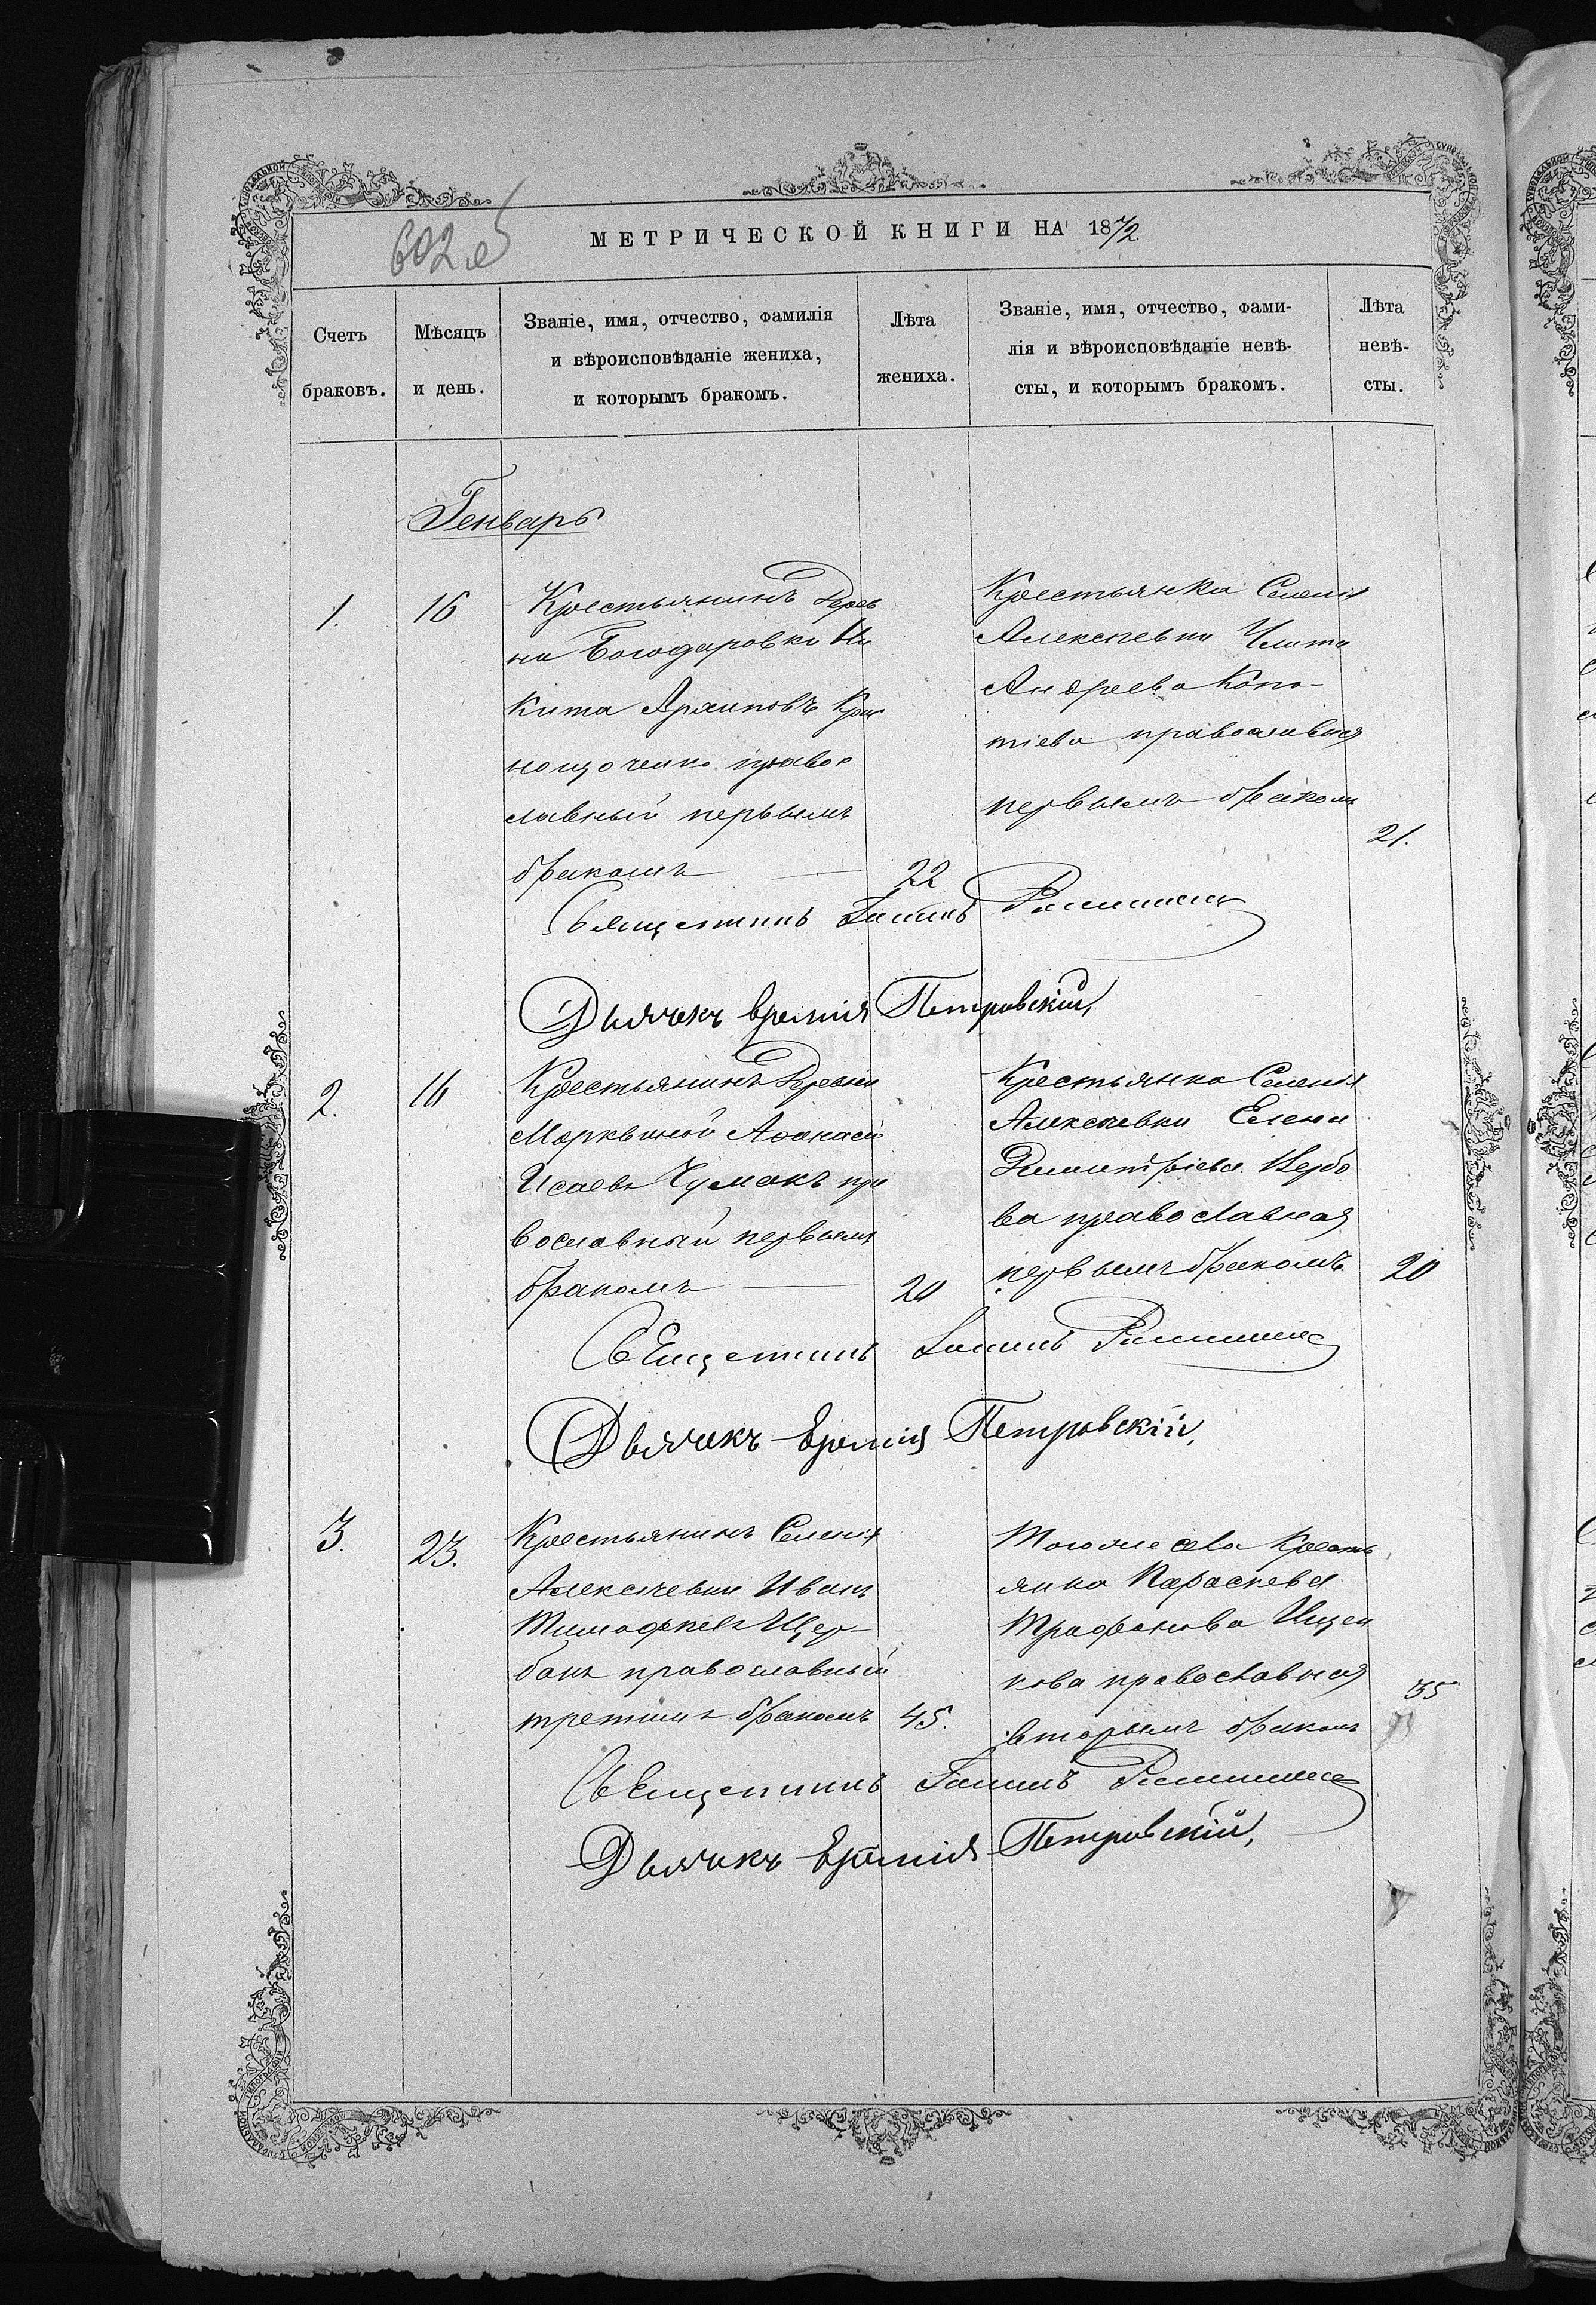 602 об
МЕТРИЧЕСКОЙ КНИГИ НА 1872
Счетъ
браковъ.
Мѣсяцъ
и день.
Званіе, имя, отчество, фамилія
и вѣроисповѣданіе жениха,
и которымъ бракомъ.
Лѣта
жениха.
Званіе, имя, отчество, фами-
лія и вѣроисповѣданіе невѣ-
сты, и которымъ бракомъ.
Лѣта
невѣ-
сты.
Генварь
1.
16
Крестьянинъ Дерев
ни Богодаровки Ни
кита Архиповъ
правос
лавный первымъ
бракомъ
22
Крестьянка Селенія
Алексѣевки
Андреева Копо-
тіева православная
первымъ бракомъ
21.
Священникъ Іоаннъ
Дьячекъ Еремія Петровскій,
2.
16
Крестьянинъ Деревни
Морквиной Аѳанасій
Исаевъ Чумакъ пра
вославный первымъ
бракомъ
20
Крестьянка Селенія
Алексѣевки Елена
Димитріева Вербо
ва православная
первымъ бракомъ
20
Священникъ Іоаннъ
Дьячекъ Еремія Петровскій,
3.
23.
Крестьянинъ Селенія
Алексѣевки Иванъ
Тимофѣевъ Щер-
бакъ православный
третьимъ бракомъ
45.
Того же села Кресть
янка Параскева
Трофимова Ищен
кова православная
вторымъ бракомъ
35
Священникъ Іоаннъ
Дьячекъ Еремія Петровскій,